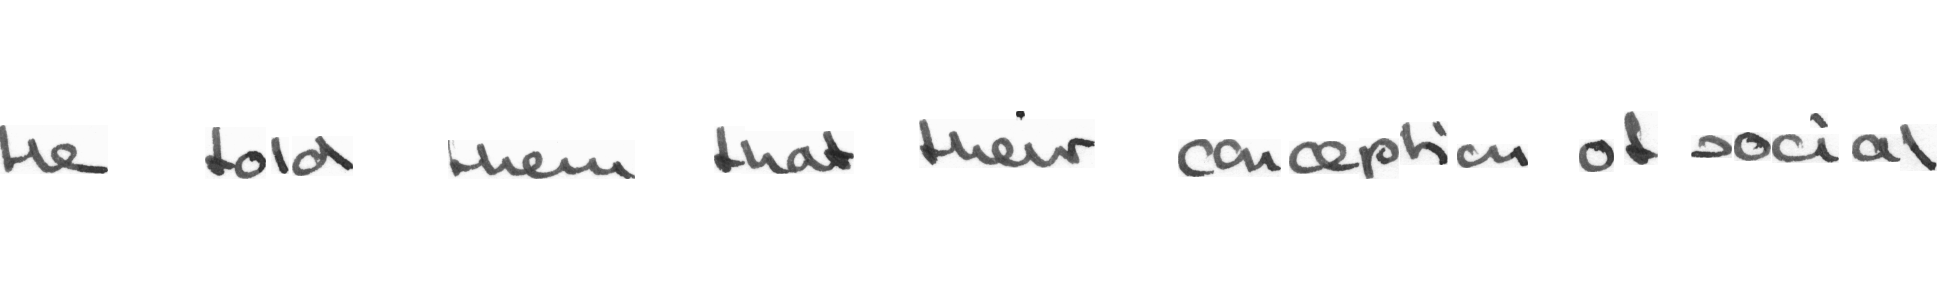 He told them that their conception of social